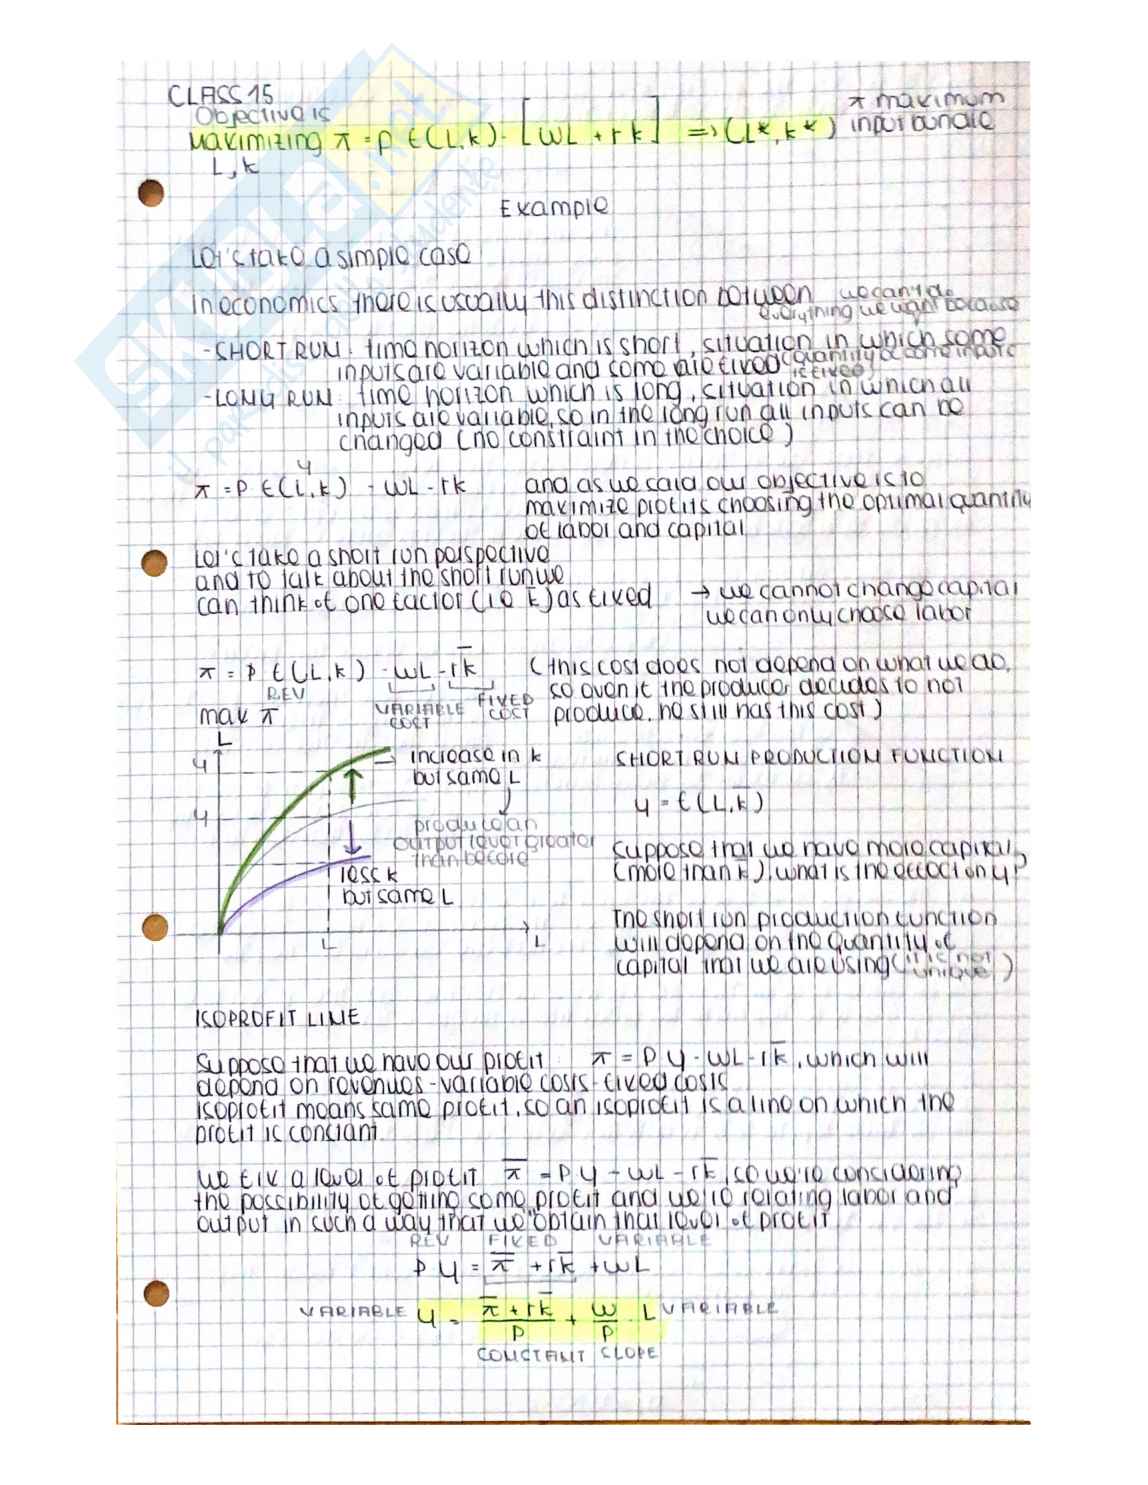 CLASS 15
Objective is
Maximizing π = p f(L,k) - [wL + rk] => (L*, k*) π maximum input bundle
L, k
Example
Let's take a simple case
In economics there is usually this distinction between we can't do everything we want because
- SHORT RUN: time horizon which is short, situation in which some
inputs are variable and some are fixed (quantity of some inputs is fixed)
- LONG RUN: time horizon which is long, situation in which all
inputs are variable, so in the long run all inputs can be
changed (no constraint in the choice)
y
π = p f(L,k) - wL - rk and as we said our objective is to
maximize profits choosing the optimal quantity
of labor and capital
Let's take a short run perspective
and to talk about the short run we
can think of one factor (i.e k̄) as fixed → we cannot change capital
we can only choose labor
π = p f(L,k) - wL - rk̄ (this cost does not depend on what we do,
REV VARIABLE COST FIXED COST so even if the producer decides to not
max π produce, he still has this cost)
L
y → increase in k
but same L
SHORT RUN PRODUCTION FUNCTION
y = f(L,k̄)
y produce an
output level greater
than before
less k
but same L
L L
Suppose that we have more capital
(more than k̄), what is the effect on y?
The short run production function
will depend on the quantity of
capital that we are using (it is not unique)
ISOPROFIT LINE
Suppose that we have our profit π = p y - wL - rk̄, which will
depend on revenues - variable costs - fixed costs
isoprofit means same profit, so an isoprofit is a line on which the
profit is constant
We fix a level of profit π̄ = p y - wL - rk̄, so we're considering
the possibility of getting some profit and we're relating labor and
output in such a way that we obtain that level of profit
REV FIXED VARIABLE
p y = π̄ + rk̄ + wL
VARIABLE y = (π̄ + rk̄)/p + w/p · L VARIABLE
CONSTANT SLOPE